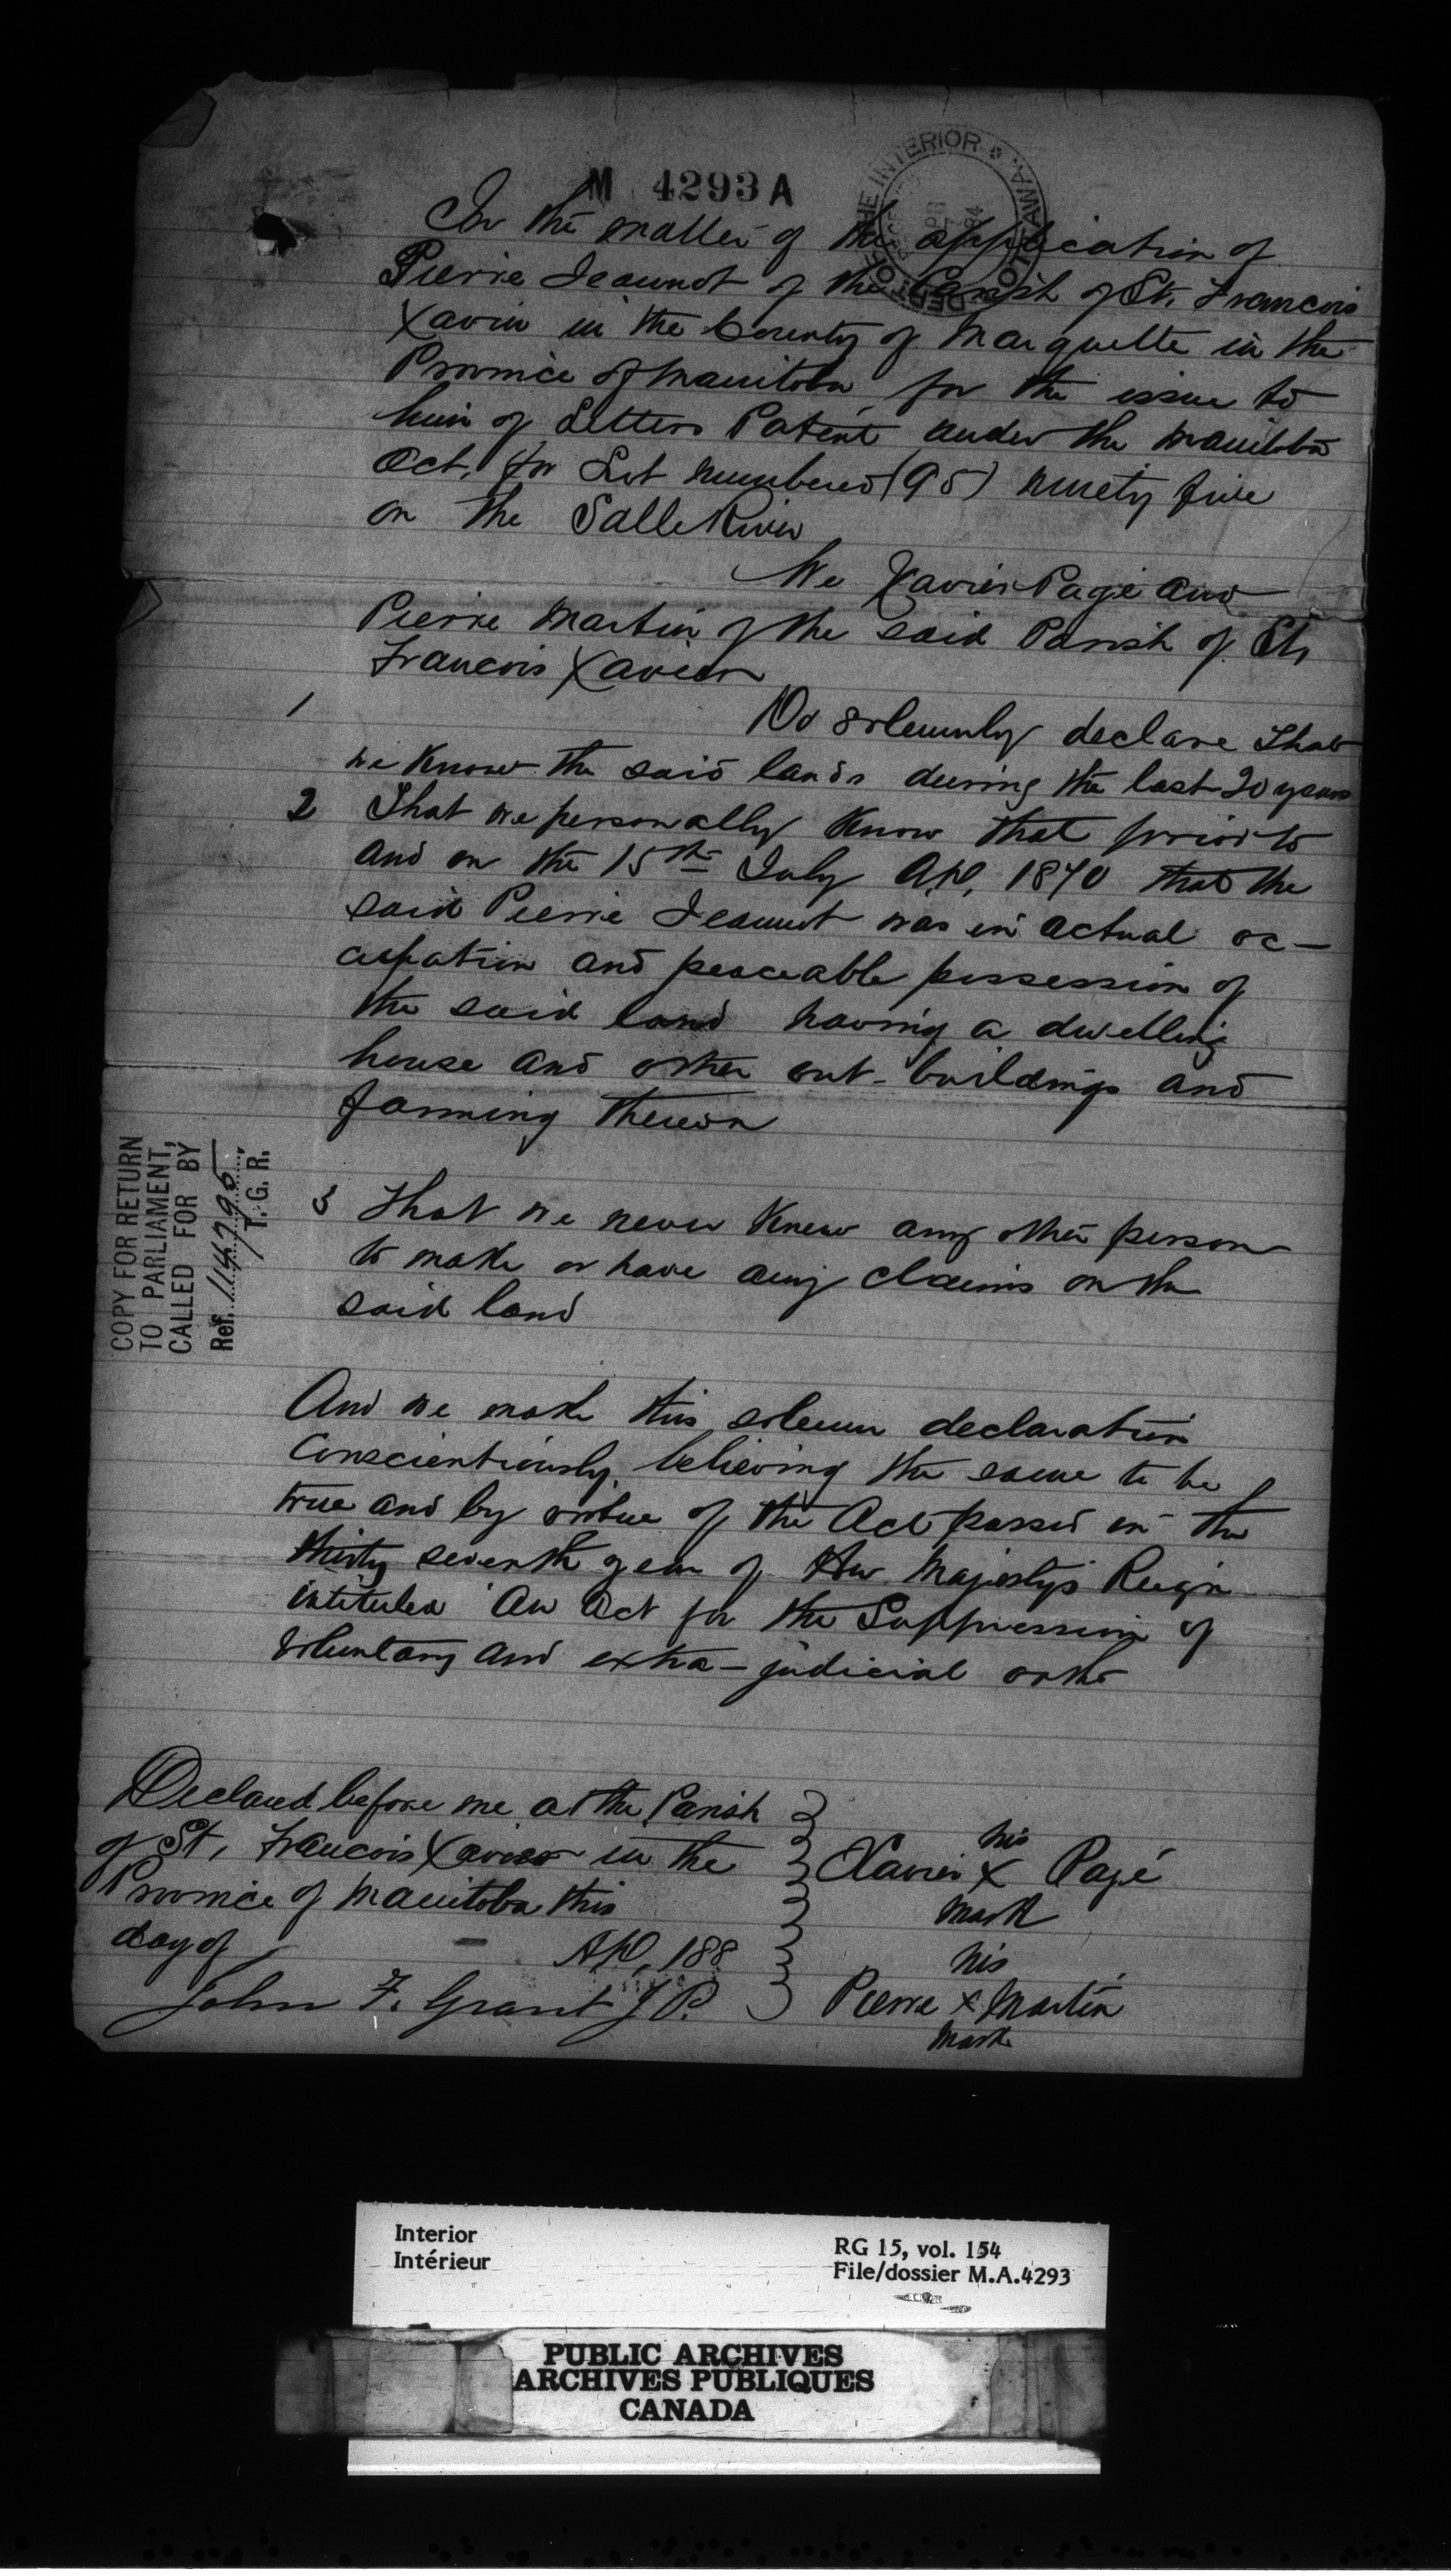 M 4293 A
DEPT OF THE INTERIOR OTTAWA
In the matter of the application of
Pierre Jeannot of the Parish of St. Francois
Xavier in the County of Marquette in the
Province of Manitoba for the issue to
him of Letters Patent under the Manitoba
Act, for Lot numbered (95) ninety five
on the Salle River
We Xavier Pagé and
Pierre Martin of the said Parish of St.
Francois Xavier
1 Do solemnly declare That
we know the said lands during the last 20 years
2 That we personally know that prior to
and on the 15th July A.D. 1870 that the
said Pierre Jeannot was in actual oc-
cupation and peaceable possession of
the said land having a dwelling
house and other out-buildings and
farming thereon
3 That we never knew any other person
to make or have any claims on the
said land
COPY FOR RETURN
TO PARLIAMENT,
CALLED FOR BY
Ref.
T. G. R.
And we make this solemn declaration
conscientiously believing the same to be
true and by virtue of the Act passed in the
thirty seventh year of Her Majesty's Reign
intituled "An Act for the Suppression of
voluntary and extra-judicial oaths
Declared before me at the Parish
of St. Francois Xavier in the
Province of Manitoba this
day of A.D. 188
John F. Grant J.P.
his
Xavier X Pagé
mark
his
Pierre X Martin
mark
Interior
Intérieur
RG 15, vol. 154
File/dossier M.A.4293
PUBLIC ARCHIVES
ARCHIVES PUBLIQUES
CANADA